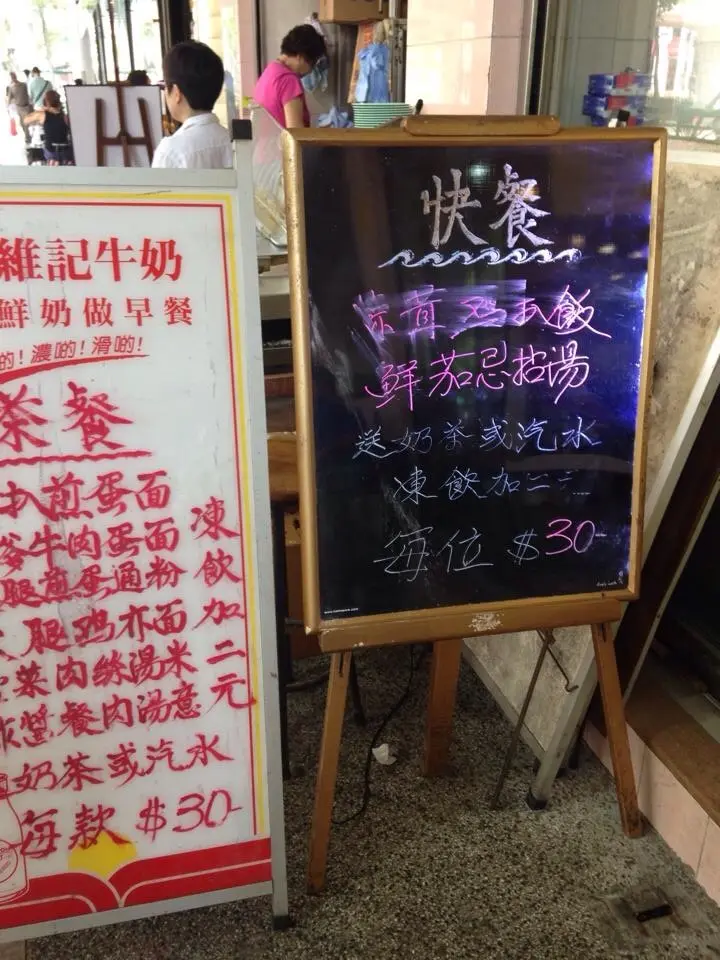 維記牛奶
鮮奶做早餐
啲!濃啲!滑啲!
茶餐
扒煎蛋面
牛肉蛋面
腿煎蛋通粉
腿鸡亦面
菜肉絲湯米
餐肉湯意
凍飲加二元
奶茶或汽水
每款 $30-
快餐
鸡扒飯
鮮茄忌招湯
送奶茶或汽水
凍飲加二
每位 $30